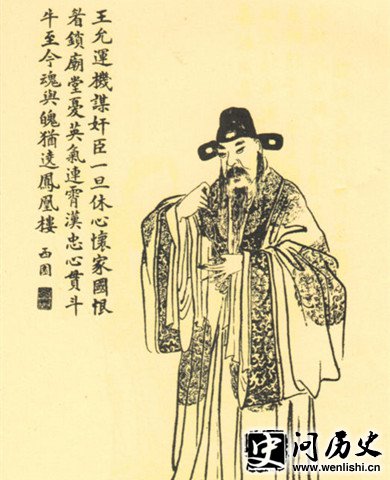 王允運機謀奸臣一旦休心懷家國恨
眉鎖廟堂憂英氣連霄漢忠心貫斗
牛至今魂與魄猶遶鳳凰樓
西園
问历史
www.wenlishi.cn